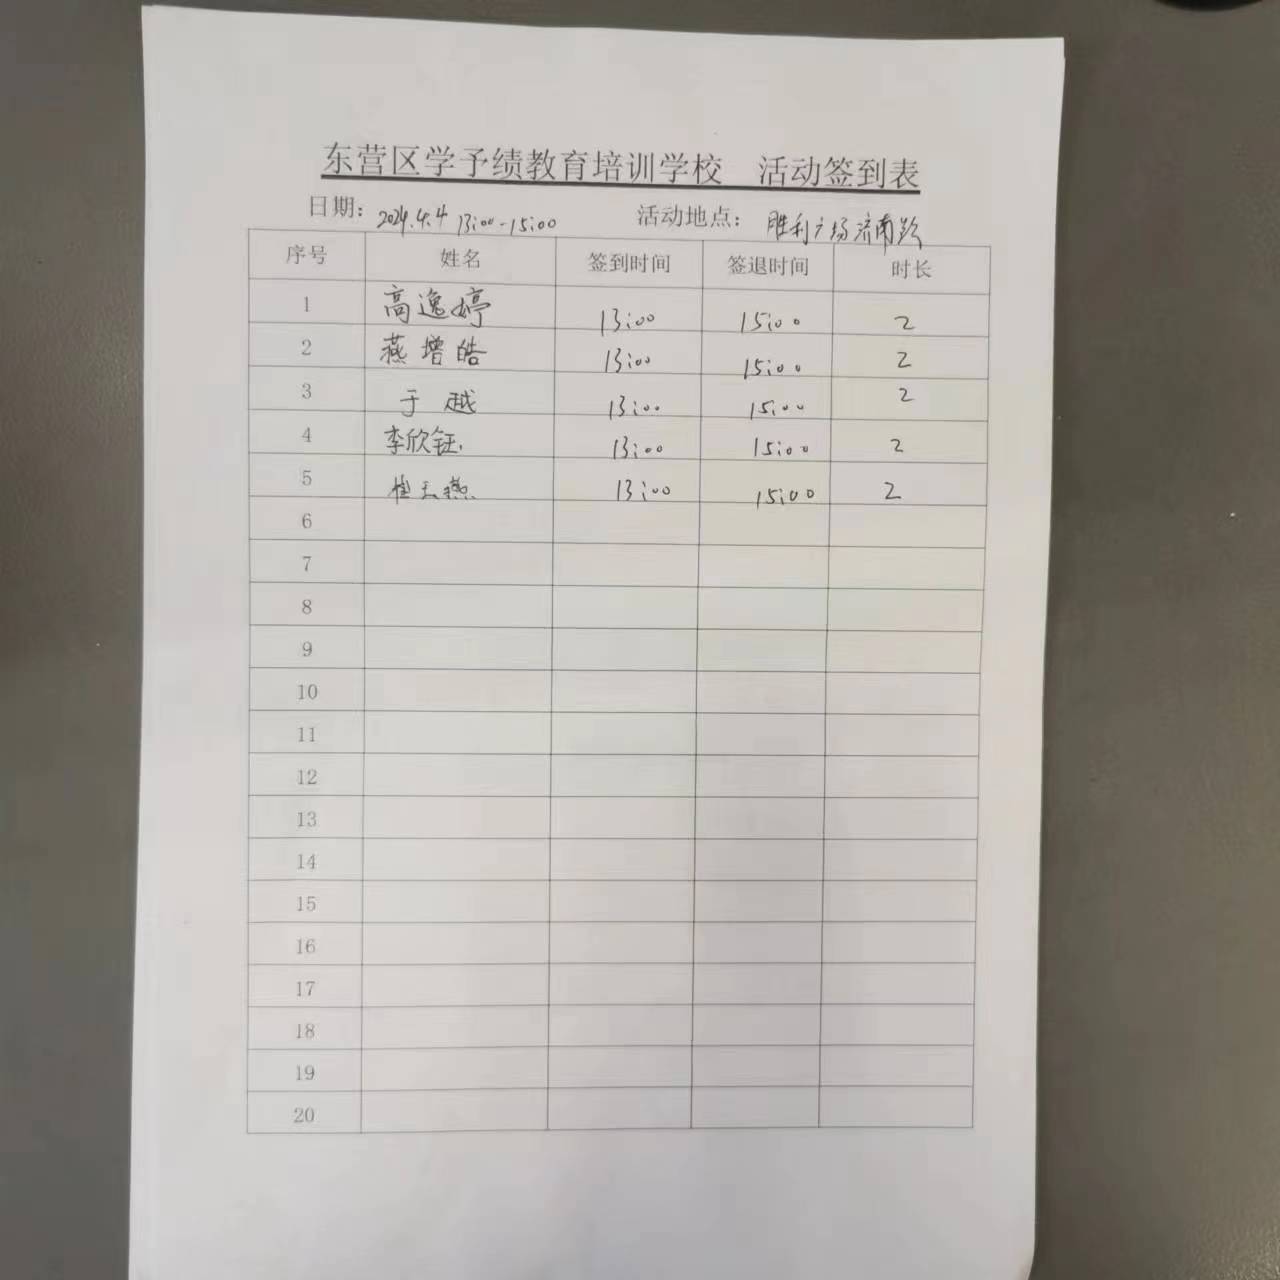 东营区学予绩教育培训学校 活动签到表
日期: 2024.4.4 13:00-15:00 活动地点: 胜利广场济南路
序号 姓名 签到时间 签退时间 时长
1 高逸婷 13:00 15:00 2
2 燕增皓 13:00 15:00 2
3 于越 13:00 15:00 2
4 李欣钰 13:00 15:00 2
5 13:00 15:00 2
6
7
8
9
10
11
12
13
14
15
16
17
18
19
20